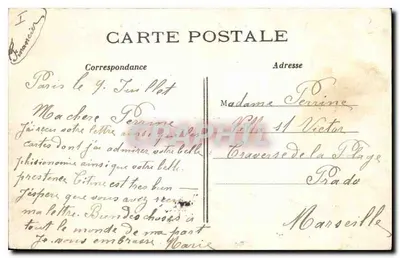 I
Financier
CARTE POSTALE
Correspondance
Adresse
Paris le 9 Juillet
Ma chere Perrine
j'ai recu votre lettre
cartes dont j'ai admirer votre belle
phisionomie ainsi que votre belle
prestence Titine est tres bien
j'espere que vous avez
ma lettre. Bien des choses à
tout le monde de ma part
Je vous embrasse Marie
Madame Perrine
Villa St Victor
Traverse de la Plage
Prado
Marseille